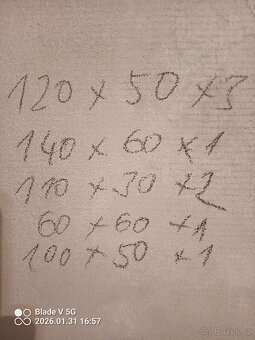 120 x 50 x3
140 x 60 x1
110 x 30 x2
60 x 60 x1
100 x 50 x1
Blade V 5G
2026.01.31 16:57